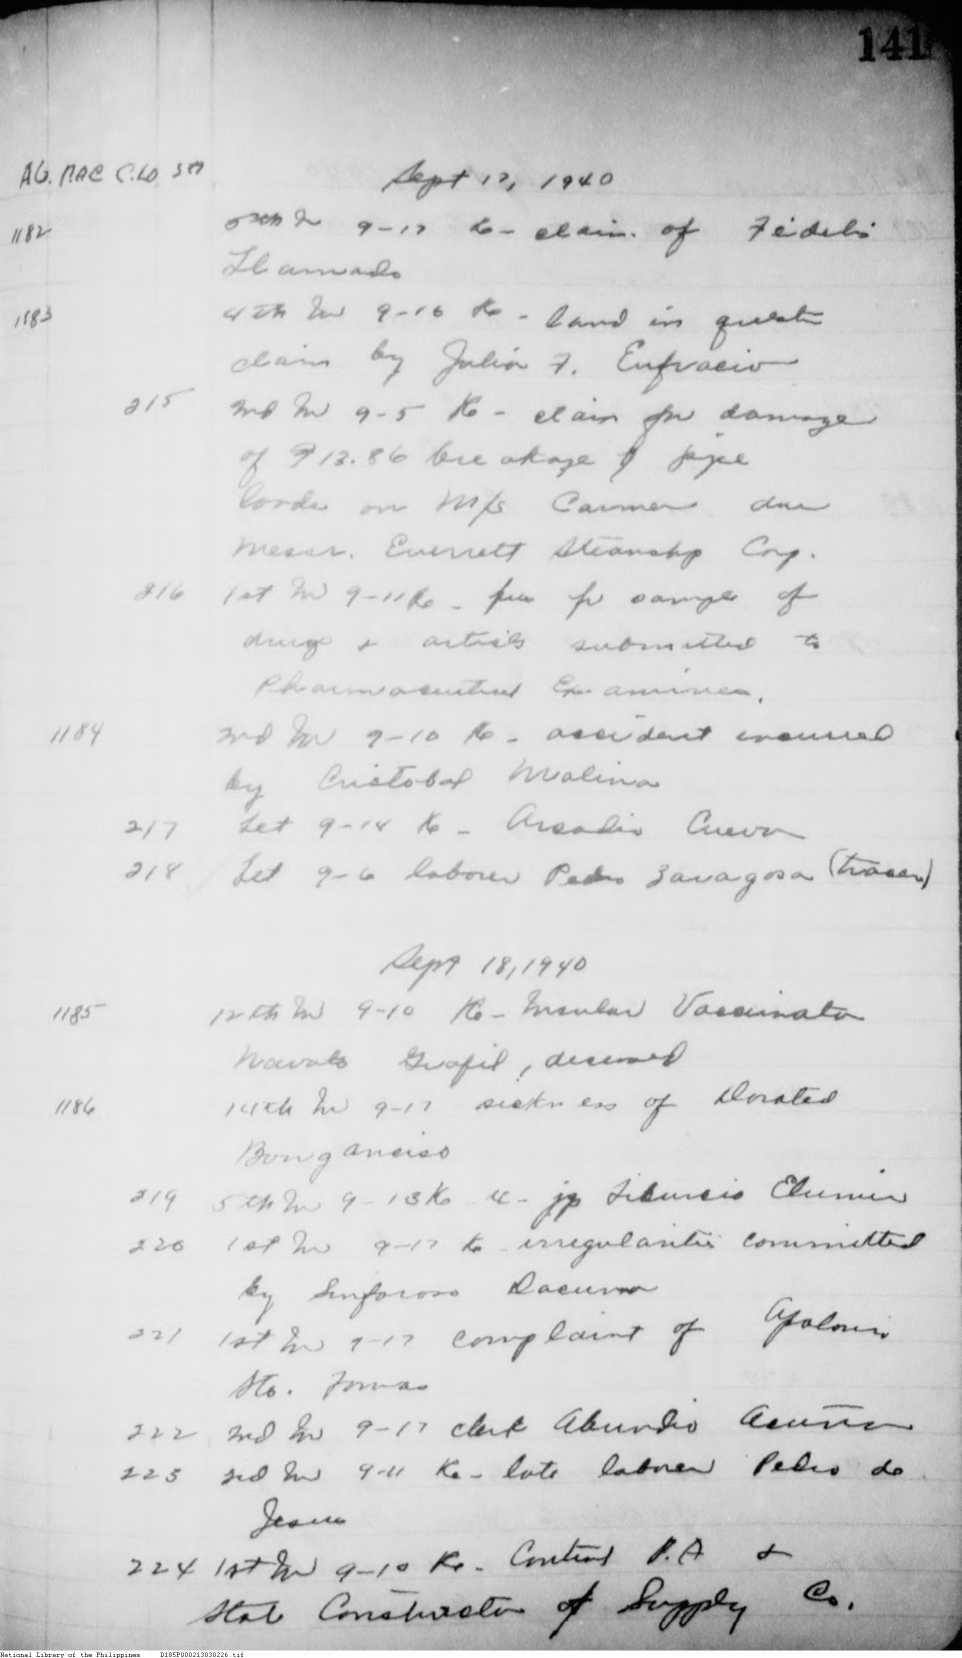 141
Sept 17, 1940
1182 9-17 Re - claim of Fidelis
Llamado
1183 4th In 9-16 Re - land in
claim by Julia F. Eufracio
215 2nd In 9-5 Re - claim for damage
of ₱13.86 breakage of pipe
loads on M/S Carmen due
Messr. Everrett Steamship Corp.
216 1st In 9-11 Re - fee for sample of
drugs & articles submitted to
Pharmaceutical Examiners.
1184 2nd In 9-10 Re - accident incurred
by Cristobal Molina
217 Let 9-14 Re - Arcadio Cueva
218 Let 9-6 laborer Pedro Zaragosa
Sept 18, 1940
1185 12th In 9-10 Re - Insular Vaccinator
deceased
1186 14th In 9-17 sickness of
219 5th In 9-13 Re
220 1st In 9-17 Re - irregularities committed
by Sinforoso
221 1st In 9-17 complaint of Apolonio
Sto. Tomas
222 2nd In 9-17 clerk Abundio Acuña
223 3rd In 9-11 Re - late laborer Pedro de
Jesus
224 1st In 9-10 Re - Contract P.A &
Construction of Supply Co.
National Library of the Philippines D185P000213030226.tif